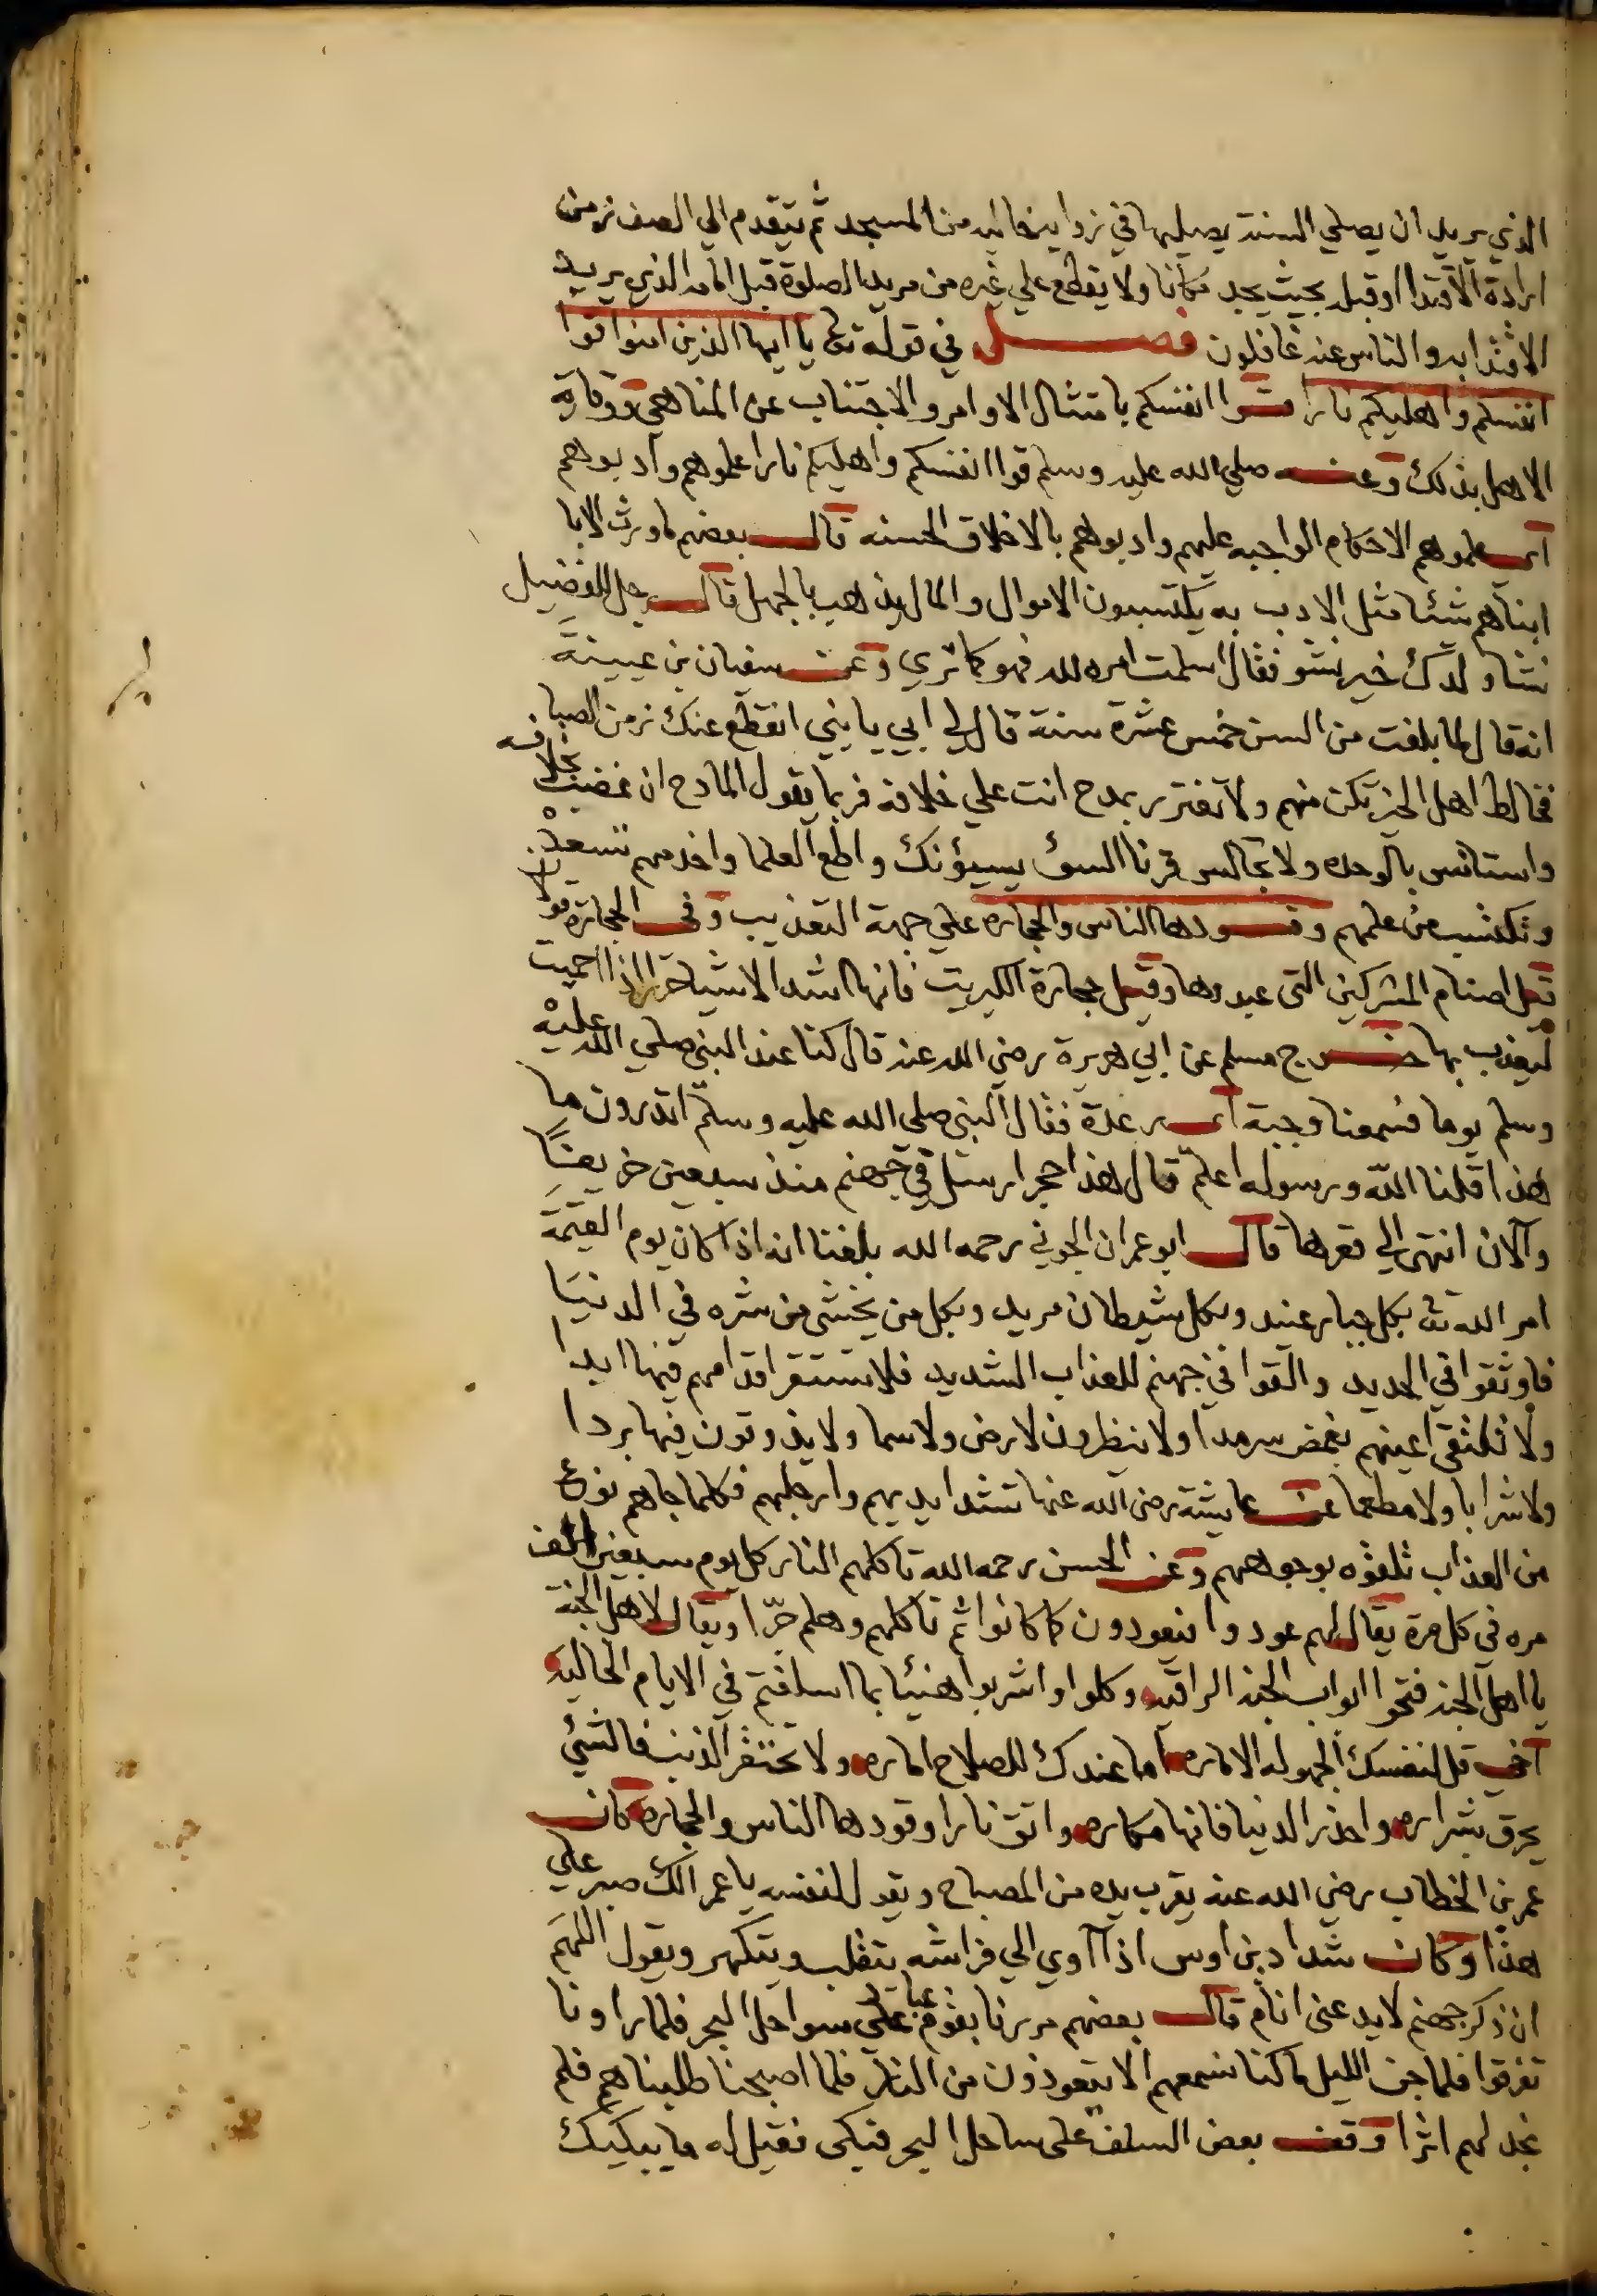 الذي يريد ان يصلي السنة يصليها في زواية خالية من المسجد ثم يتقدم الي الصف زمن
ارادة الاقتدا او قبل بحيث يجد مكانا ولا يقطع علي غيره من مريد الصلوة قبل الامام الذي يريد
الاقتدا به والناس عنه غافلون فصل في قوله تع يا ايها الذين امنوا قوا
انفسكم واهليكم نارا قوا انفسكم بامتثال الاوامر والاجتناب عن المناهي ووقاية
الاهل بذلك وعنه صلي الله عليه وسلم قوا انفسكم واهليكم نارا علموهم وادبوهم
اى علموهم الاحكام الواجبه عليهم وادبوهم بالاخلاق الحسنه قال بعضهم ما ورث الابا
ابناهم شئا مثل الادب به يكتسبون الاموال والمال يذهب بالجهل قال رجل للفضيل
نشا ولدك خير نشو فقال اسلمت امره لله فهو كما تري وعن سفيان بن عيينة
انه قال لما بلغت من السن خمس عشرة سنة قال لي ابي يا بني انقطع عنك زمن الصبا
فخالط اهل الخير تكن منهم ولا تغترر بمدح انت علي خلافه فربما يقول المادح ان غضب بخلافه
واستانس بالوحده ولا تجالس قرنا السؤ يسيؤنك واطع العلما واخدمهم تسعد
وتكتسب من علمهم وقودها الناس والحجاره علي جهة التعذيب وفي الحجارة قولان
قيل اصنام المشركين التى عبدوها وقيل حجارة الكبريت فانها اشد الاشيا حرا اذا احميت
ليعذب بها خرج مسلم عن ابي هريرة رضي الله عنه قال كنا عند النبي صلي الله عليه
وسلم يوما فسمعنا وجبة اى رعدة فقال النبي صلى الله عليه وسلم اتدرون ما
هذا قلنا الله ورسوله اعلم قال هذا حجر ارسل في جهنم منذ سبعين خريفا
والان انتهى الي قعرها قال ابو عمران الجوني رحمه الله بلغنا انه اذا كان يوم القيمة
امر الله تع بكل جبار عنيد وبكل شيطان مريد وبكل من يخشى من شره في الدنيا
فاوثقوا في الحديد والقوا في جهنم للعذاب الشديد فلا تستقر اقدامهم فيها ابدا
ولا تلتقي اعينهم بغمض سرمدا ولا ينظرون لارض ولا سما ولا يذوقون فيها بردا
ولا شرابا ولا مطعما عن عايشة رضى الله عنها تشد ايديهم وارجلهم فكلما جاهم نوع
من العذاب تلقوه بوجوههم وعن الحسن رحمه الله تاكلهم النار كل يوم سبعين الف
مره في كل مرة يقال لهم عودوا فيعودون كما كانوا ثم تاكلهم وهلم جرا ويقال لاهل الجنة
يا اهل الجنه فتحوا ابواب الجنه الراقيه وكلوا واشربوا هنيئا بما اسلفتم في الايام الخاليه
اخي قل لنفسك الجهوله الاماره اما عندك للصلاح اماره ولا تحتقر الذنب فالشئي
يحرق بشراره واحذر الدنيا فانها مكاره واتق نارا وقودها الناس والحجاره كان
عمر بن الخطاب رضي الله عنه يقرب يده من المصباح ويقول لنفسه يا عمر الك صبر علي
هذا وكان شداد بن اوس اذا اوي الي فراشه يتقلب ويتكهر ويقول اللهم
ان ذكر جهنم لا يدعنى انام قال بعضهم مررنا بقوم عباد على سواحل البحر فلما راونا
تفرقوا فلما جن الليل ما كنا نسمعهم الا يتعوذون من النار فلما اصبحنا طلبناهم فلم
نجد لهم اثرا وقف بعض السلف على ساحل البحر فبكى فقيل له ما يبكيك